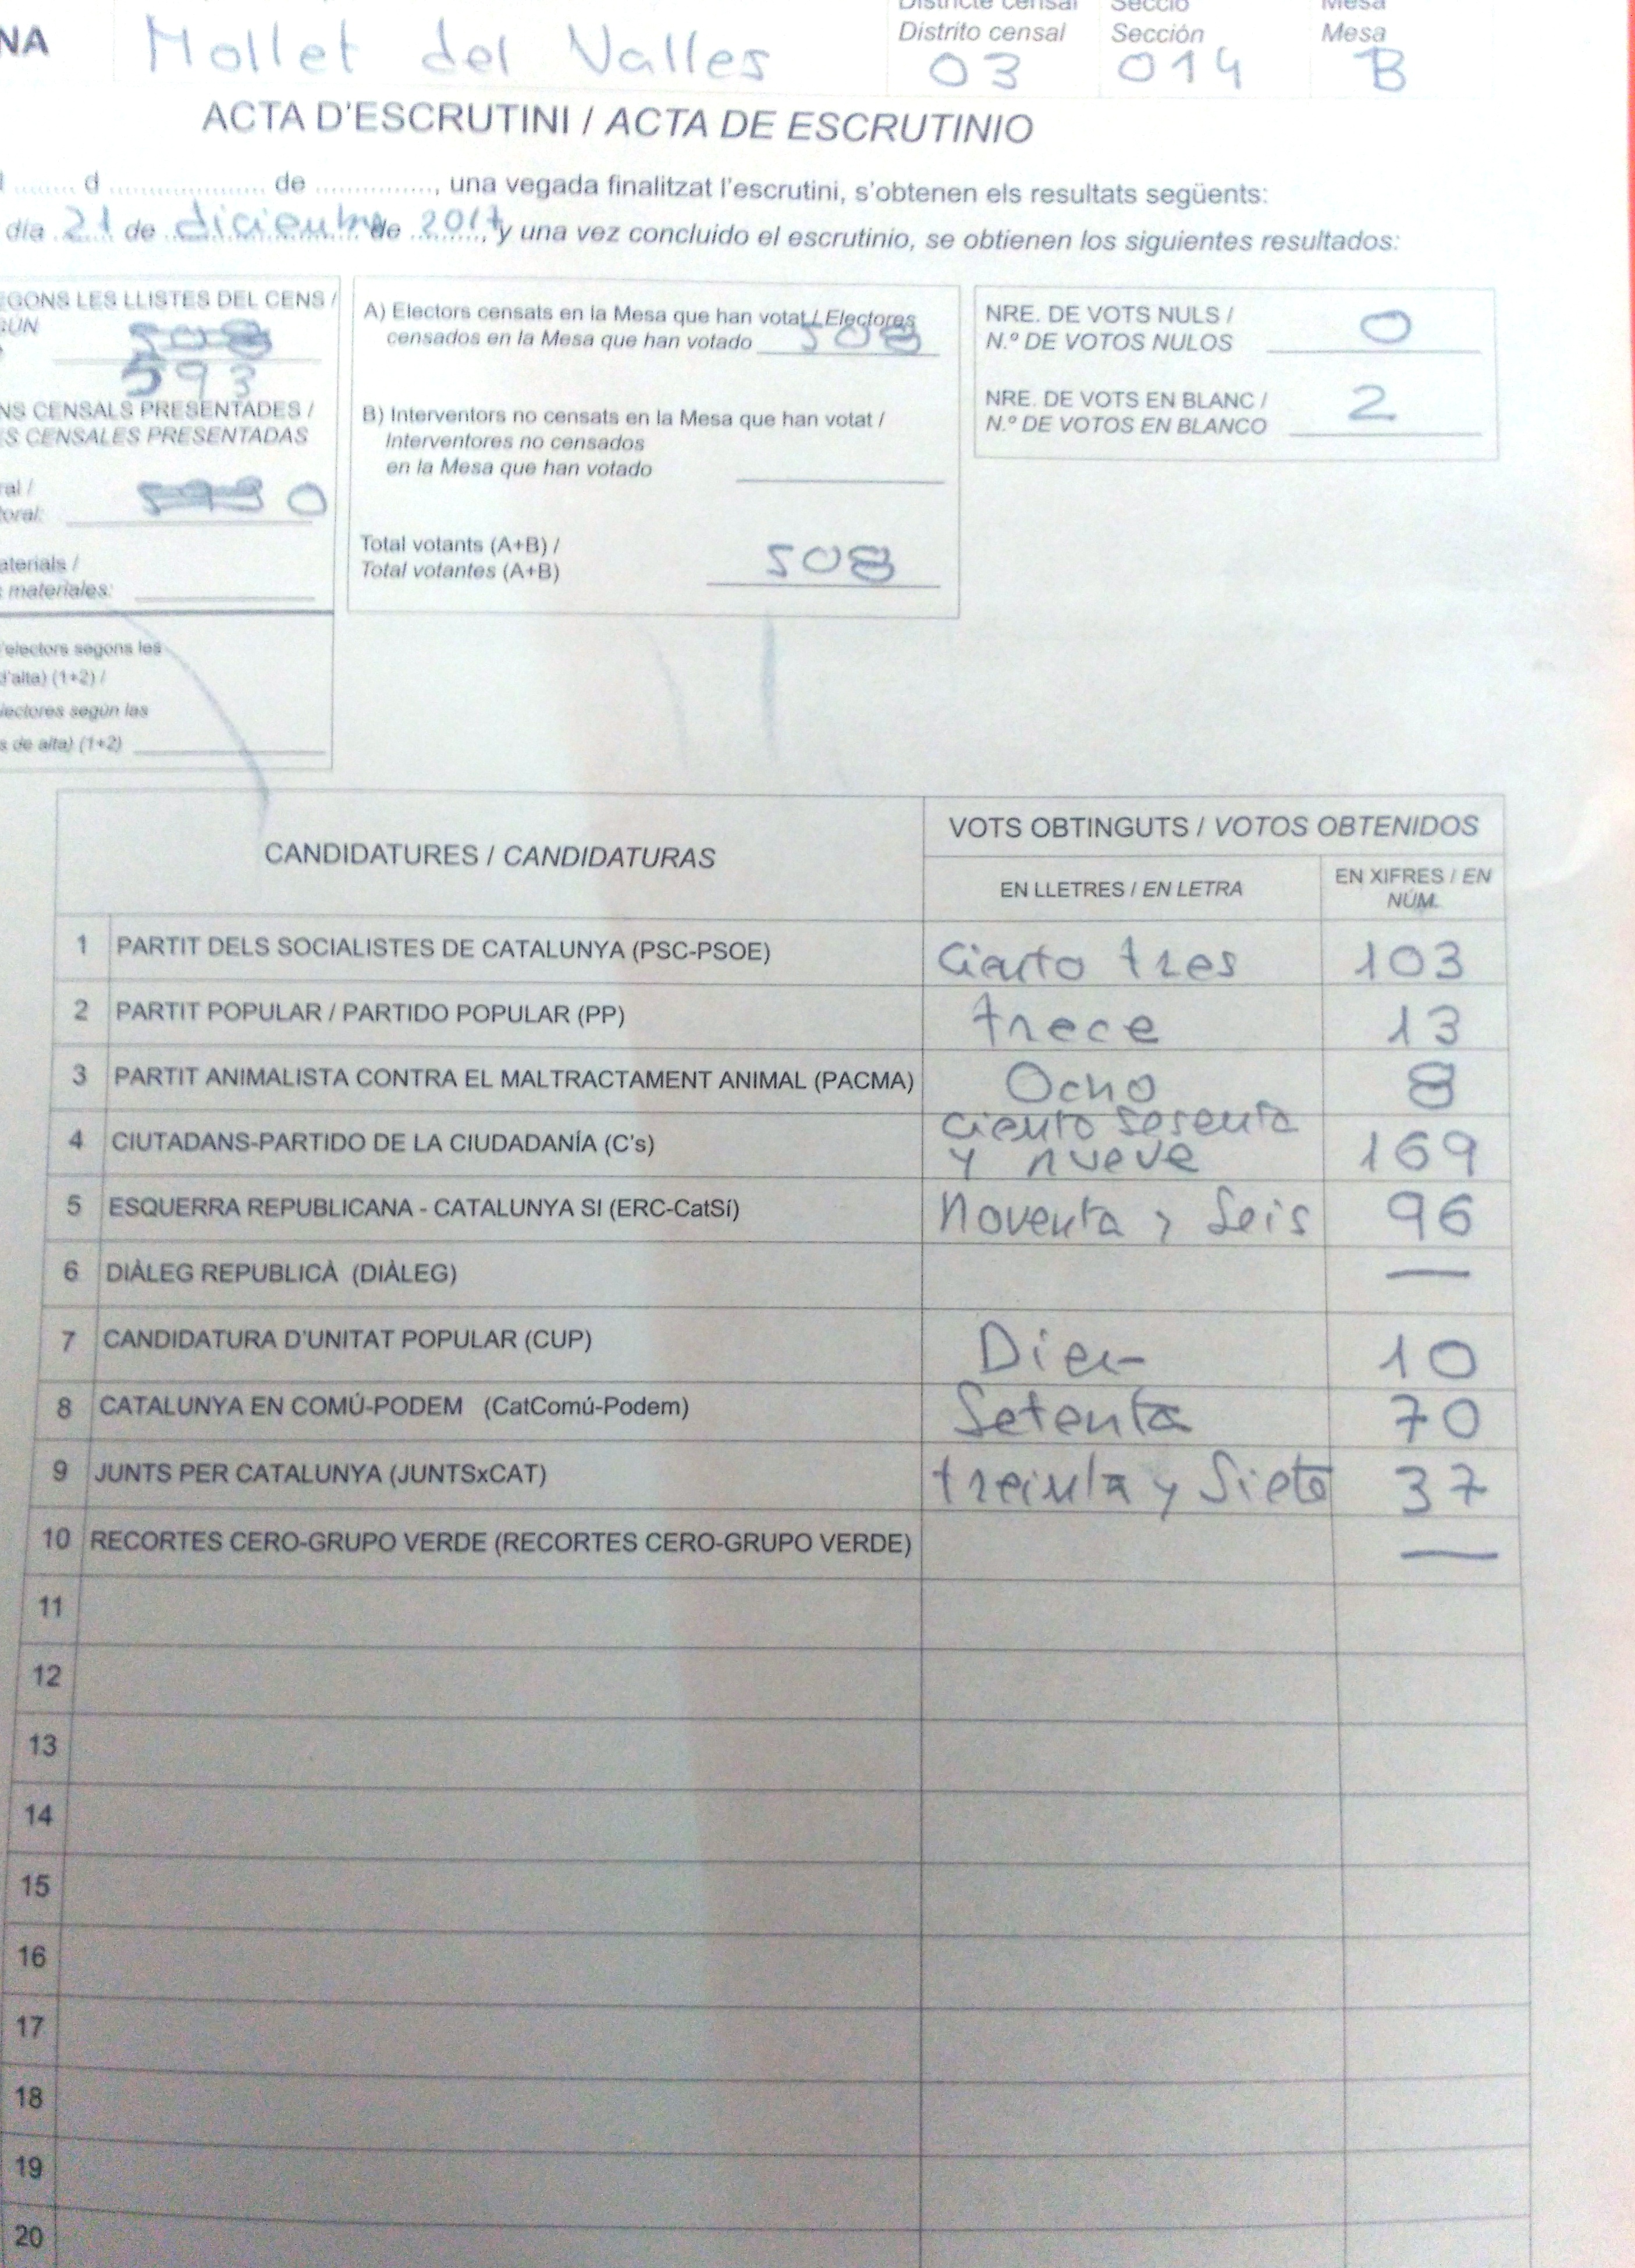 Districte censal Secció Mesa
NA Mollet del Valles Distrito censal Sección Mesa
03 014 B
ACTA D'ESCRUTINI / ACTA DE ESCRUTINIO
d de , una vegada finalitzat l'escrutini, s'obtenen els resultats següents:
día 21 de diciembre de 2017, y una vez concluido el escrutinio, se obtienen los siguientes resultados:
EGONS LES LLISTES DEL CENS /
593
NS CENSALS PRESENTADES /
S CENSALES PRESENTADAS
ral /
toral: 0
aterials /
materiales:
'electors segons les
d'alta) (1+2) /
lectores según las
s de alta) (1+2)
A) Electors censats en la Mesa que han votat / Electores
censados en la Mesa que han votado 508
B) Interventors no censats en la Mesa que han votat /
Interventores no censados
en la Mesa que han votado
Total votants (A+B) /
Total votantes (A+B) 508
NRE. DE VOTS NULS /
N.º DE VOTOS NULOS 0
NRE. DE VOTS EN BLANC /
N.º DE VOTOS EN BLANCO 2
CANDIDATURES / CANDIDATURAS
VOTS OBTINGUTS / VOTOS OBTENIDOS
EN LLETRES / EN LETRA
EN XIFRES / EN
NÚM.
1 PARTIT DELS SOCIALISTES DE CATALUNYA (PSC-PSOE) tres 103
2 PARTIT POPULAR / PARTIDO POPULAR (PP) trece 13
3 PARTIT ANIMALISTA CONTRA EL MALTRACTAMENT ANIMAL (PACMA) Ocho 8
4 CIUTADANS-PARTIDO DE LA CIUDADANÍA (C's) ciento sesenta
y nueve 169
5 ESQUERRA REPUBLICANA - CATALUNYA SI (ERC-CatSí) Noventa y Seis 96
6 DIÀLEG REPUBLICÀ (DIÀLEG) —
7 CANDIDATURA D'UNITAT POPULAR (CUP) Diez 10
8 CATALUNYA EN COMÚ-PODEM (CatComú-Podem) Setenta 70
9 JUNTS PER CATALUNYA (JUNTSxCAT) treinta y Siete 37
10 RECORTES CERO-GRUPO VERDE (RECORTES CERO-GRUPO VERDE) —
11
12
13
14
15
16
17
18
19
20